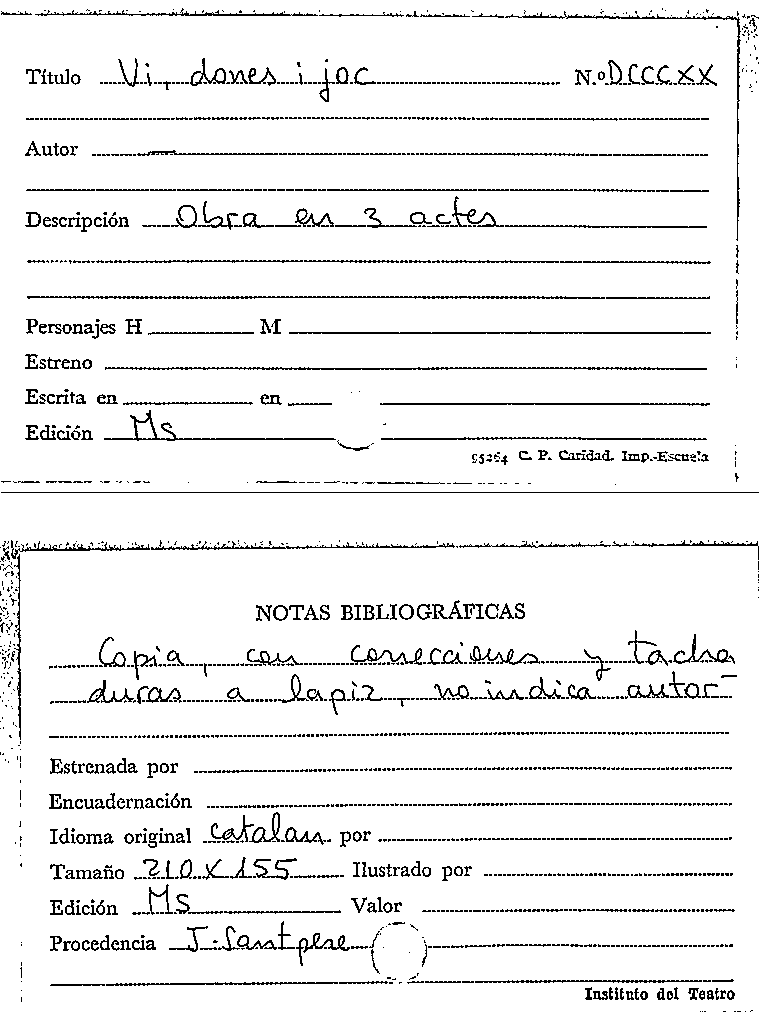 Título Vi, dones i joc N.º DCCCXX
Autor —
Descripción Obra en 3 actes
Personajes H M
Estreno
Escrita en en
Edición Ms
95264 C. P. Caridad. Imp.-Escuela
NOTAS BIBLIOGRÁFICAS
Copia, con correcciones y tacha
duras a lapiz, no indica autor-
Estrenada por
Encuadernación
Idioma original catalan por
Tamaño 210 X 155 Ilustrado por
Edición Ms Valor
Procedencia J. Santpere
Instituto del Teatro